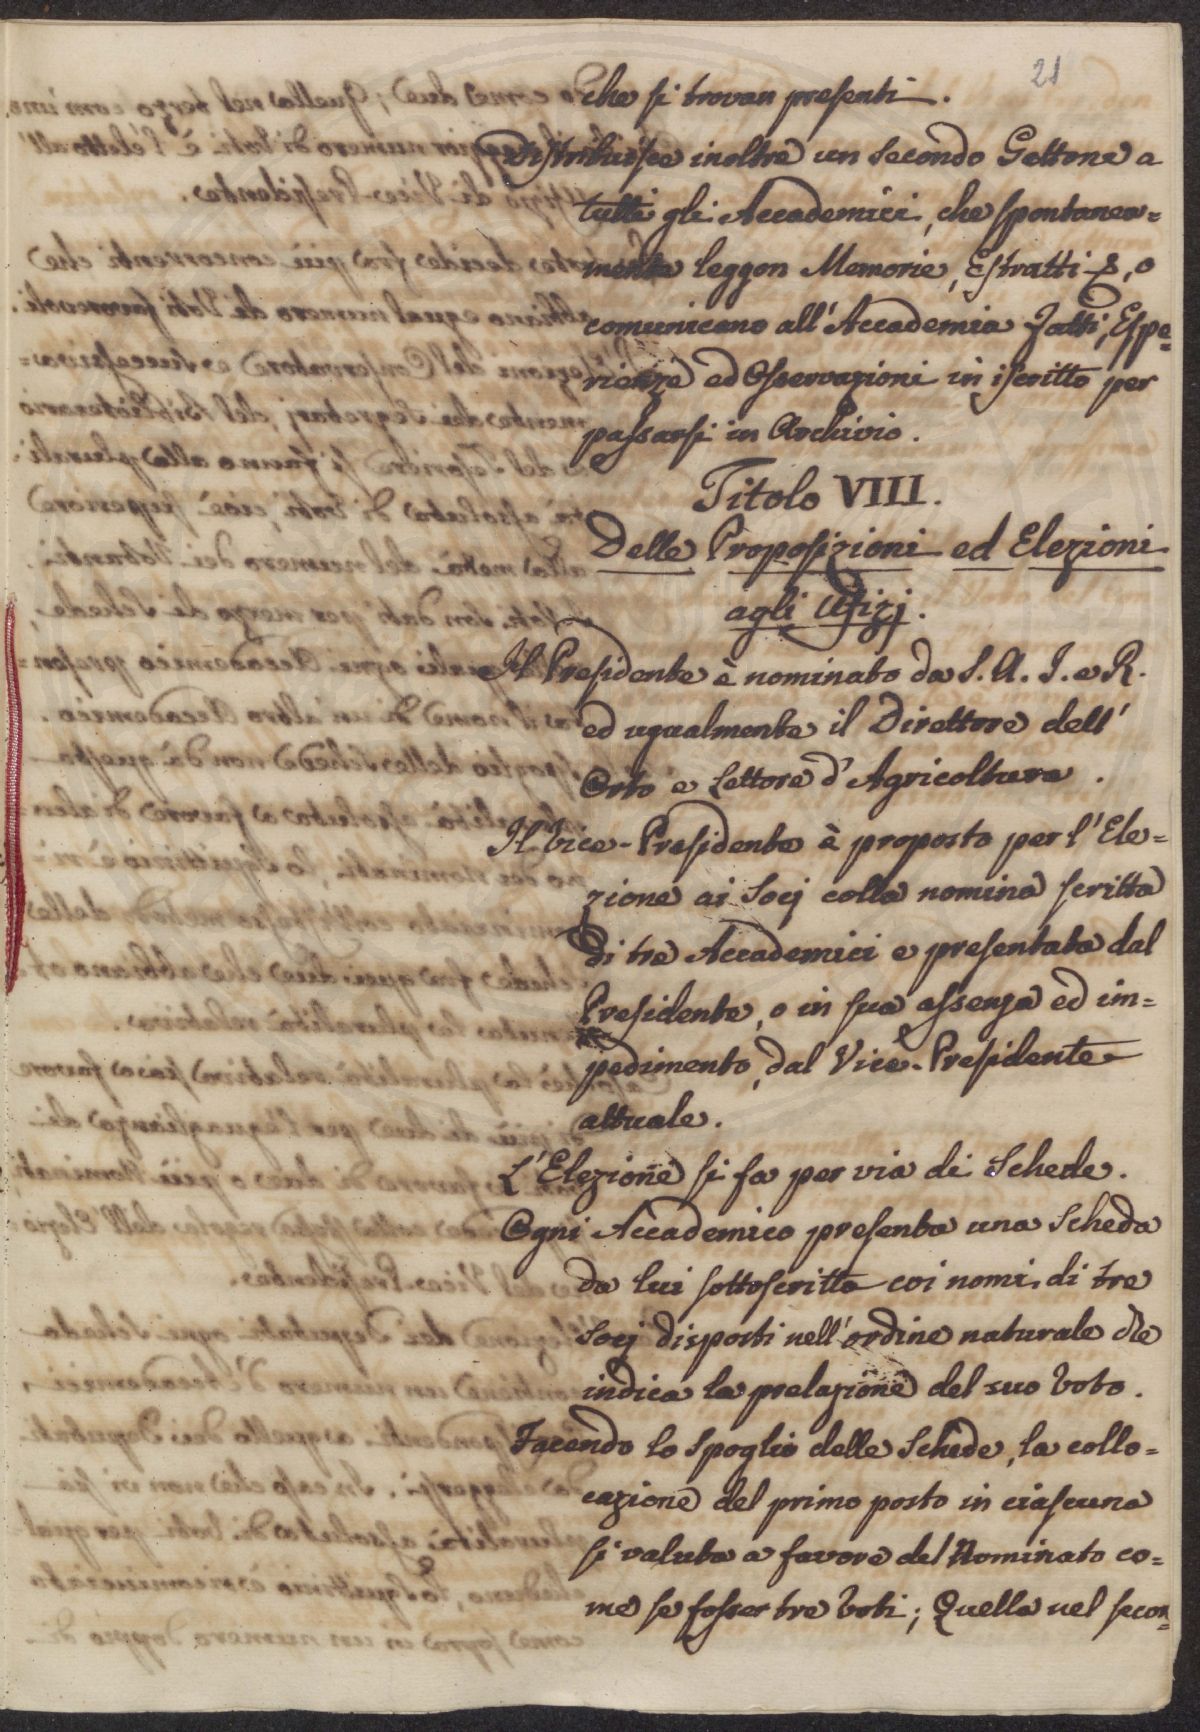 21
che si trovan presenti.
Distribuisce inoltre un secondo Gettone a
tutti gli Accademici, che spontanea=
mente leggon Memorie, Estratti &, o
comunicano all'Accademia Fatti, Espe=
rienze ed Osservazioni in iscritto per
passarsi in Archivio.
Titolo VIII.
Delle Proposizioni ed Elezioni
agli Ufizj.
Il Presidente è nominato da S. A. I. e R.
ed ugualmente il Direttore dell'
Orto e Lettore d'Agricoltura.
Il Vice-Presidente è proposto per l'Ele=
zione ai Socj colla nomina scritta
di tre Accademici e presentata dal
Presidente, o in sua assenza ed im=
pedimento, dal Vice-Presidente
attuale.
L'Elezione si fa per via di Schede.
Ogni Accademico presenta una Scheda
da lui sottoscritta coi nomi di tre
Socj disposti nell'ordine naturale che
indica la prelazione del suo voto.
Facendo lo spoglio delle Schede, la collo=
cazione del primo posto in ciascuna
si valuta a favore del Nominato co=
me se fosser tre Voti; Quella nel secon=